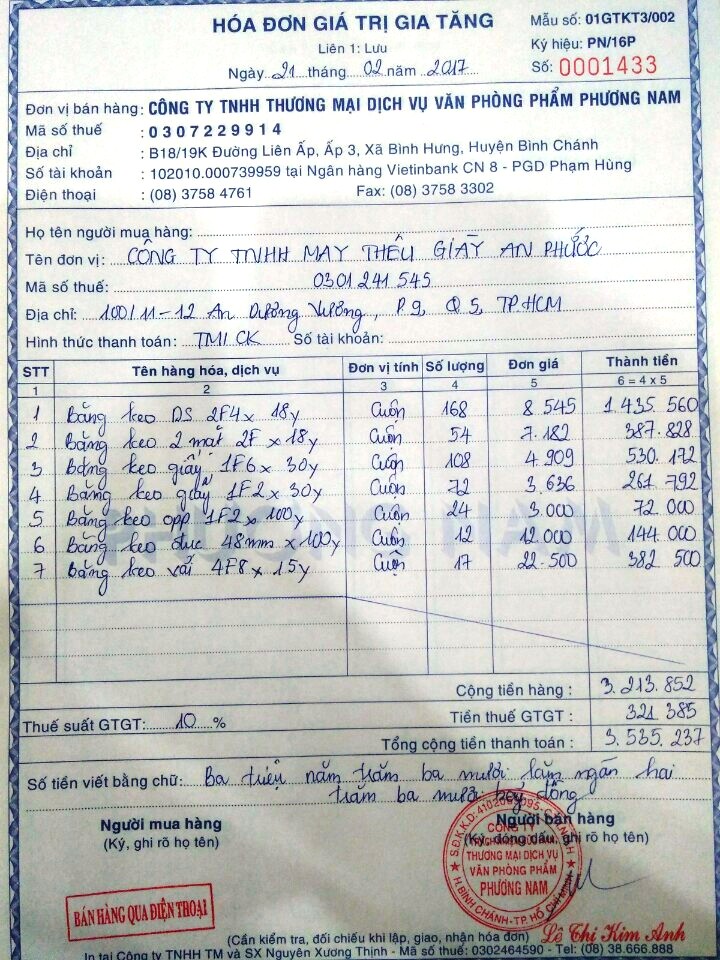 HÓA ĐƠN GIÁ TRỊ GIA TĂNG
Liên 1: Lưu
Ngày 21 tháng 02 năm 2017
Mẫu số: 01GTKT3/002
Ký hiệu: PN/16P
Số: 0001433
Đơn vị bán hàng: CÔNG TY TNHH THƯƠNG MẠI DỊCH VỤ VĂN PHÒNG PHẨM PHƯƠNG NAM
Mã số thuế : 0307229914
Địa chỉ : B18/19K Đường Liên Ấp, Ấp 3, Xã Bình Hưng, Huyện Bình Chánh
Số tài khoản : 102010.000739959 tại Ngân hàng Vietinbank CN 8 - PGD Phạm Hùng
Điện thoại : (08) 3758 4761 Fax: (08) 3758 3302
Họ tên người mua hàng:
Tên đơn vị: CÔNG TY TNHH MAY THÊU GIÀY AN PHƯỚC
Mã số thuế: 0301241545
Địa chỉ: 100/11-12 An Dương Vương, P.9, Q5, TP.HCM
Hình thức thanh toán: TM/CK Số tài khoản:
STT Tên hàng hóa, dịch vụ Đơn vị tính Số lượng Đơn giá Thành tiền
1 2 3 4 5 6 = 4 x 5
1 Băng keo DS 2F4 x 18y Cuộn 168 8.545 1.435.560
2 Băng keo 2 mặt 2F x 18y Cuộn 54 7.182 387.828
3 Băng keo giấy 1F6 x 30y Cuộn 108 4.909 530.172
4 Băng keo giấy 1F2 x 30y Cuộn 72 3.636 261.792
5 Băng keo opp 1F2 x 100y Cuộn 24 3.000 72.000
6 Băng keo đục 48mm x 100y Cuộn 12 12.000 144.000
7 Băng keo vải 4F8 x 15y Cuộn 17 22.500 382.500
Cộng tiền hàng : 3.213.852
Thuế suất GTGT: 10 % Tiền thuế GTGT : 321.385
Tổng cộng tiền thanh toán : 3.535.237
Số tiền viết bằng chữ: Ba triệu năm trăm ba mươi lăm ngàn hai
trăm ba mươi bảy đồng
Người mua hàng Người bán hàng
(Ký, ghi rõ họ tên) (Ký, đóng dấu, ghi rõ họ tên)
CÔNG TY
THƯƠNG MẠI DỊCH VỤ
VĂN PHÒNG PHẨM
PHƯƠNG NAM
H. BÌNH CHÁNH - TP. HỒ CHÍ MINH
BÁN HÀNG QUA ĐIỆN THOẠI
Lê Thị Kim Anh
(Cần kiểm tra, đối chiếu khi lập, giao, nhận hóa đơn)
In tại Công ty TNHH TM và SX Nguyên Xương Thịnh - Mã số thuế: 0302464590 - Tel: (08) 38.666.888